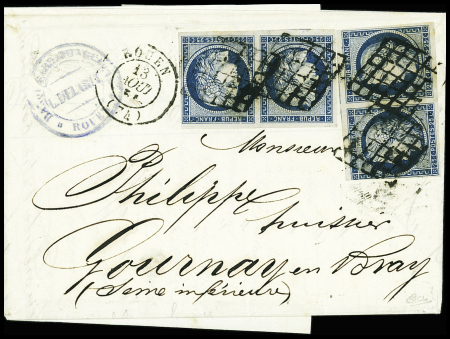 ROUEN
13
AOUT
(74)
ROUE
REPUB·FRANC
REPUB·FRANC
Monsieur
Philippe
huissier
Gournay en Bray
(Seine inférieure)